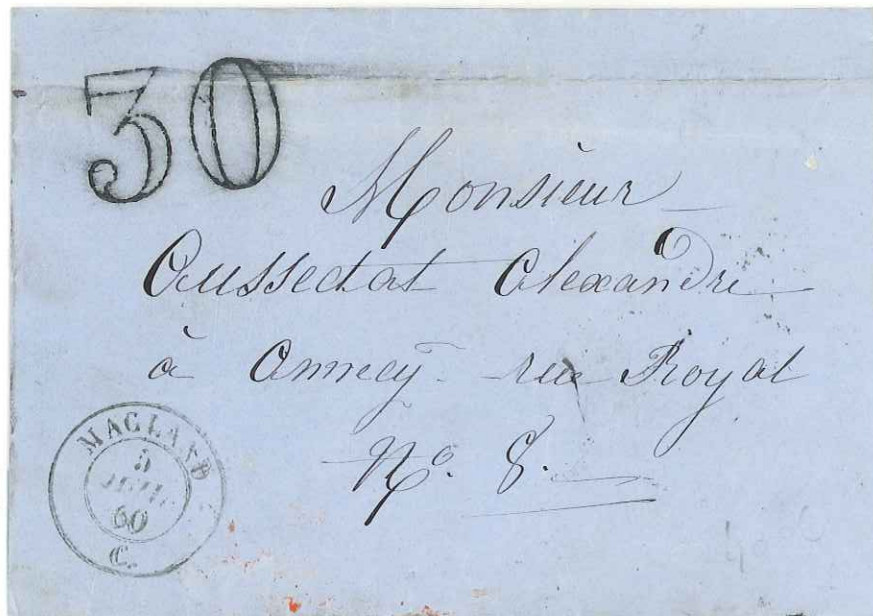 30
Monsieur
Aussedat Alexandre
à Annecy rue Royal
N.º 8.
MAGLAND
5
60
C.